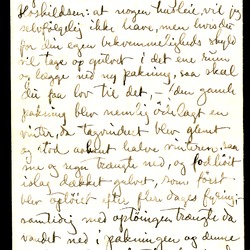 Høskildsen: at nogen husleie vil jeg
selvfølgelig ikke have, men hvis du
for din egen bekvemmeligheds skyld
vil tage op gulvet i det ene rum
og lægge ned ny pakning, saa skal
du faa lov til det, – den gamle
pakning blev nemlig ødelagt en
vinter, da tagvinduet blev glemt
og stod aabent halve vinteren, saa
sne og regn trængte ned, og fodhøit
islag dækket gulvet, som først
blev optøiet efter flere dages fyring;
samtidig med optøiningen trængte da
vandet ned i pakningen og denne